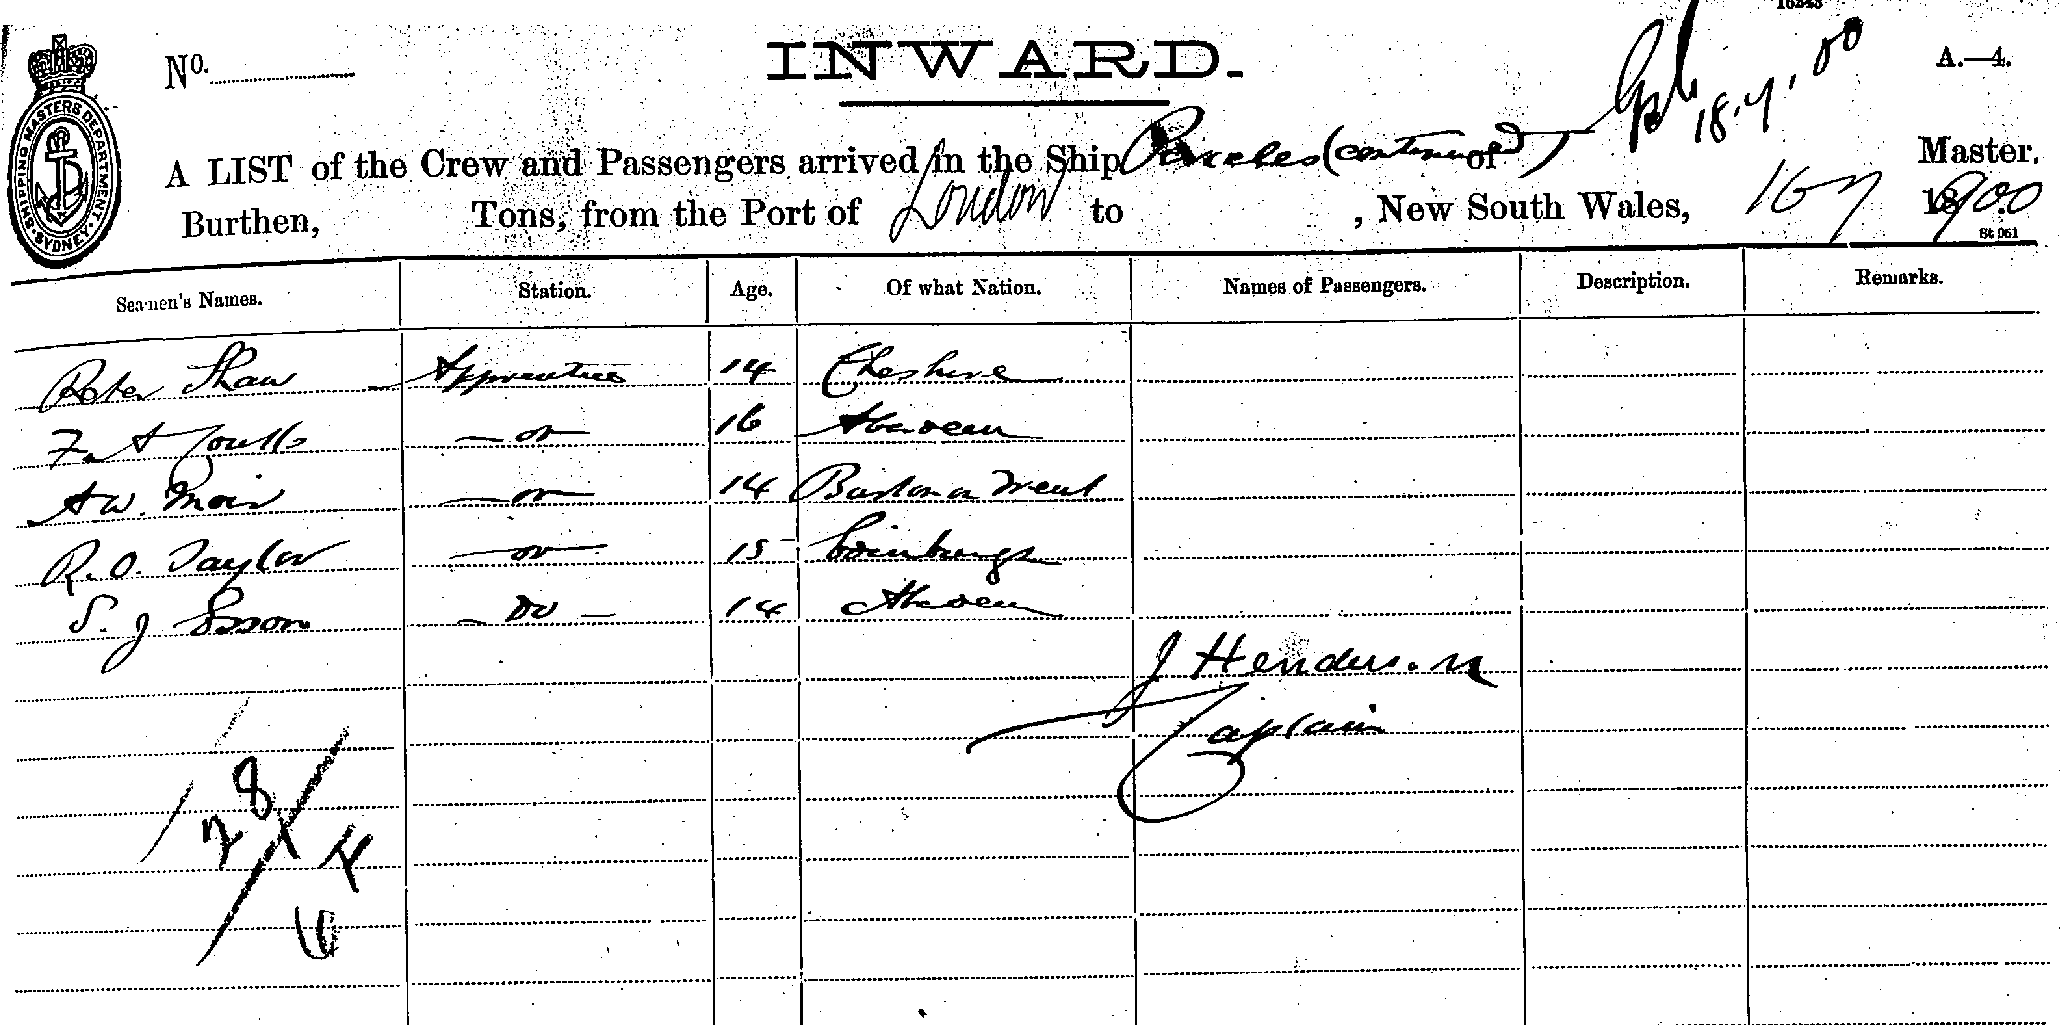 16243
INWARD.
No.
A.—4.
18.7.00
A LIST of the Crew and Passengers arrived in the Ship (continued) of Master.
Burthen, Tons, from the Port of London to , New South Wales, 16 7 1900
St 961
SHIPPING MASTERS DEPARTMENT. SYDNEY.
Seamen's Names. Station. Age. Of what Nation. Names of Passengers. Description. Remarks.
Peter Shaw Apprentice 14 Cheshire
F. A 16 Aberdeen
A W. Moir 14 Burton on Trent
R. O. Taylor 15 Edinburgh
S. J Esson Do 14 Aberdeen
J Henderson
Captain